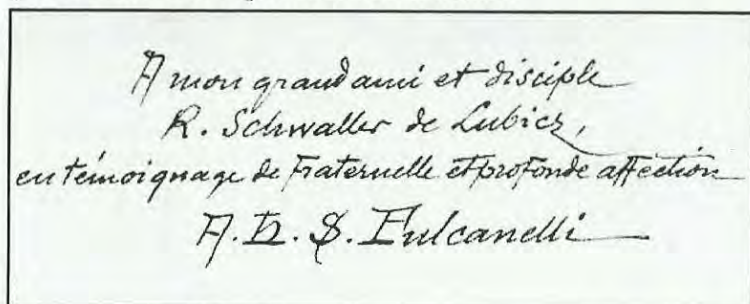 A mon grand ami et disciple
R. Schwaller de Lubicz,
en témoignage de Fraternelle et profonde affection
A.H.S. Fulcanelli